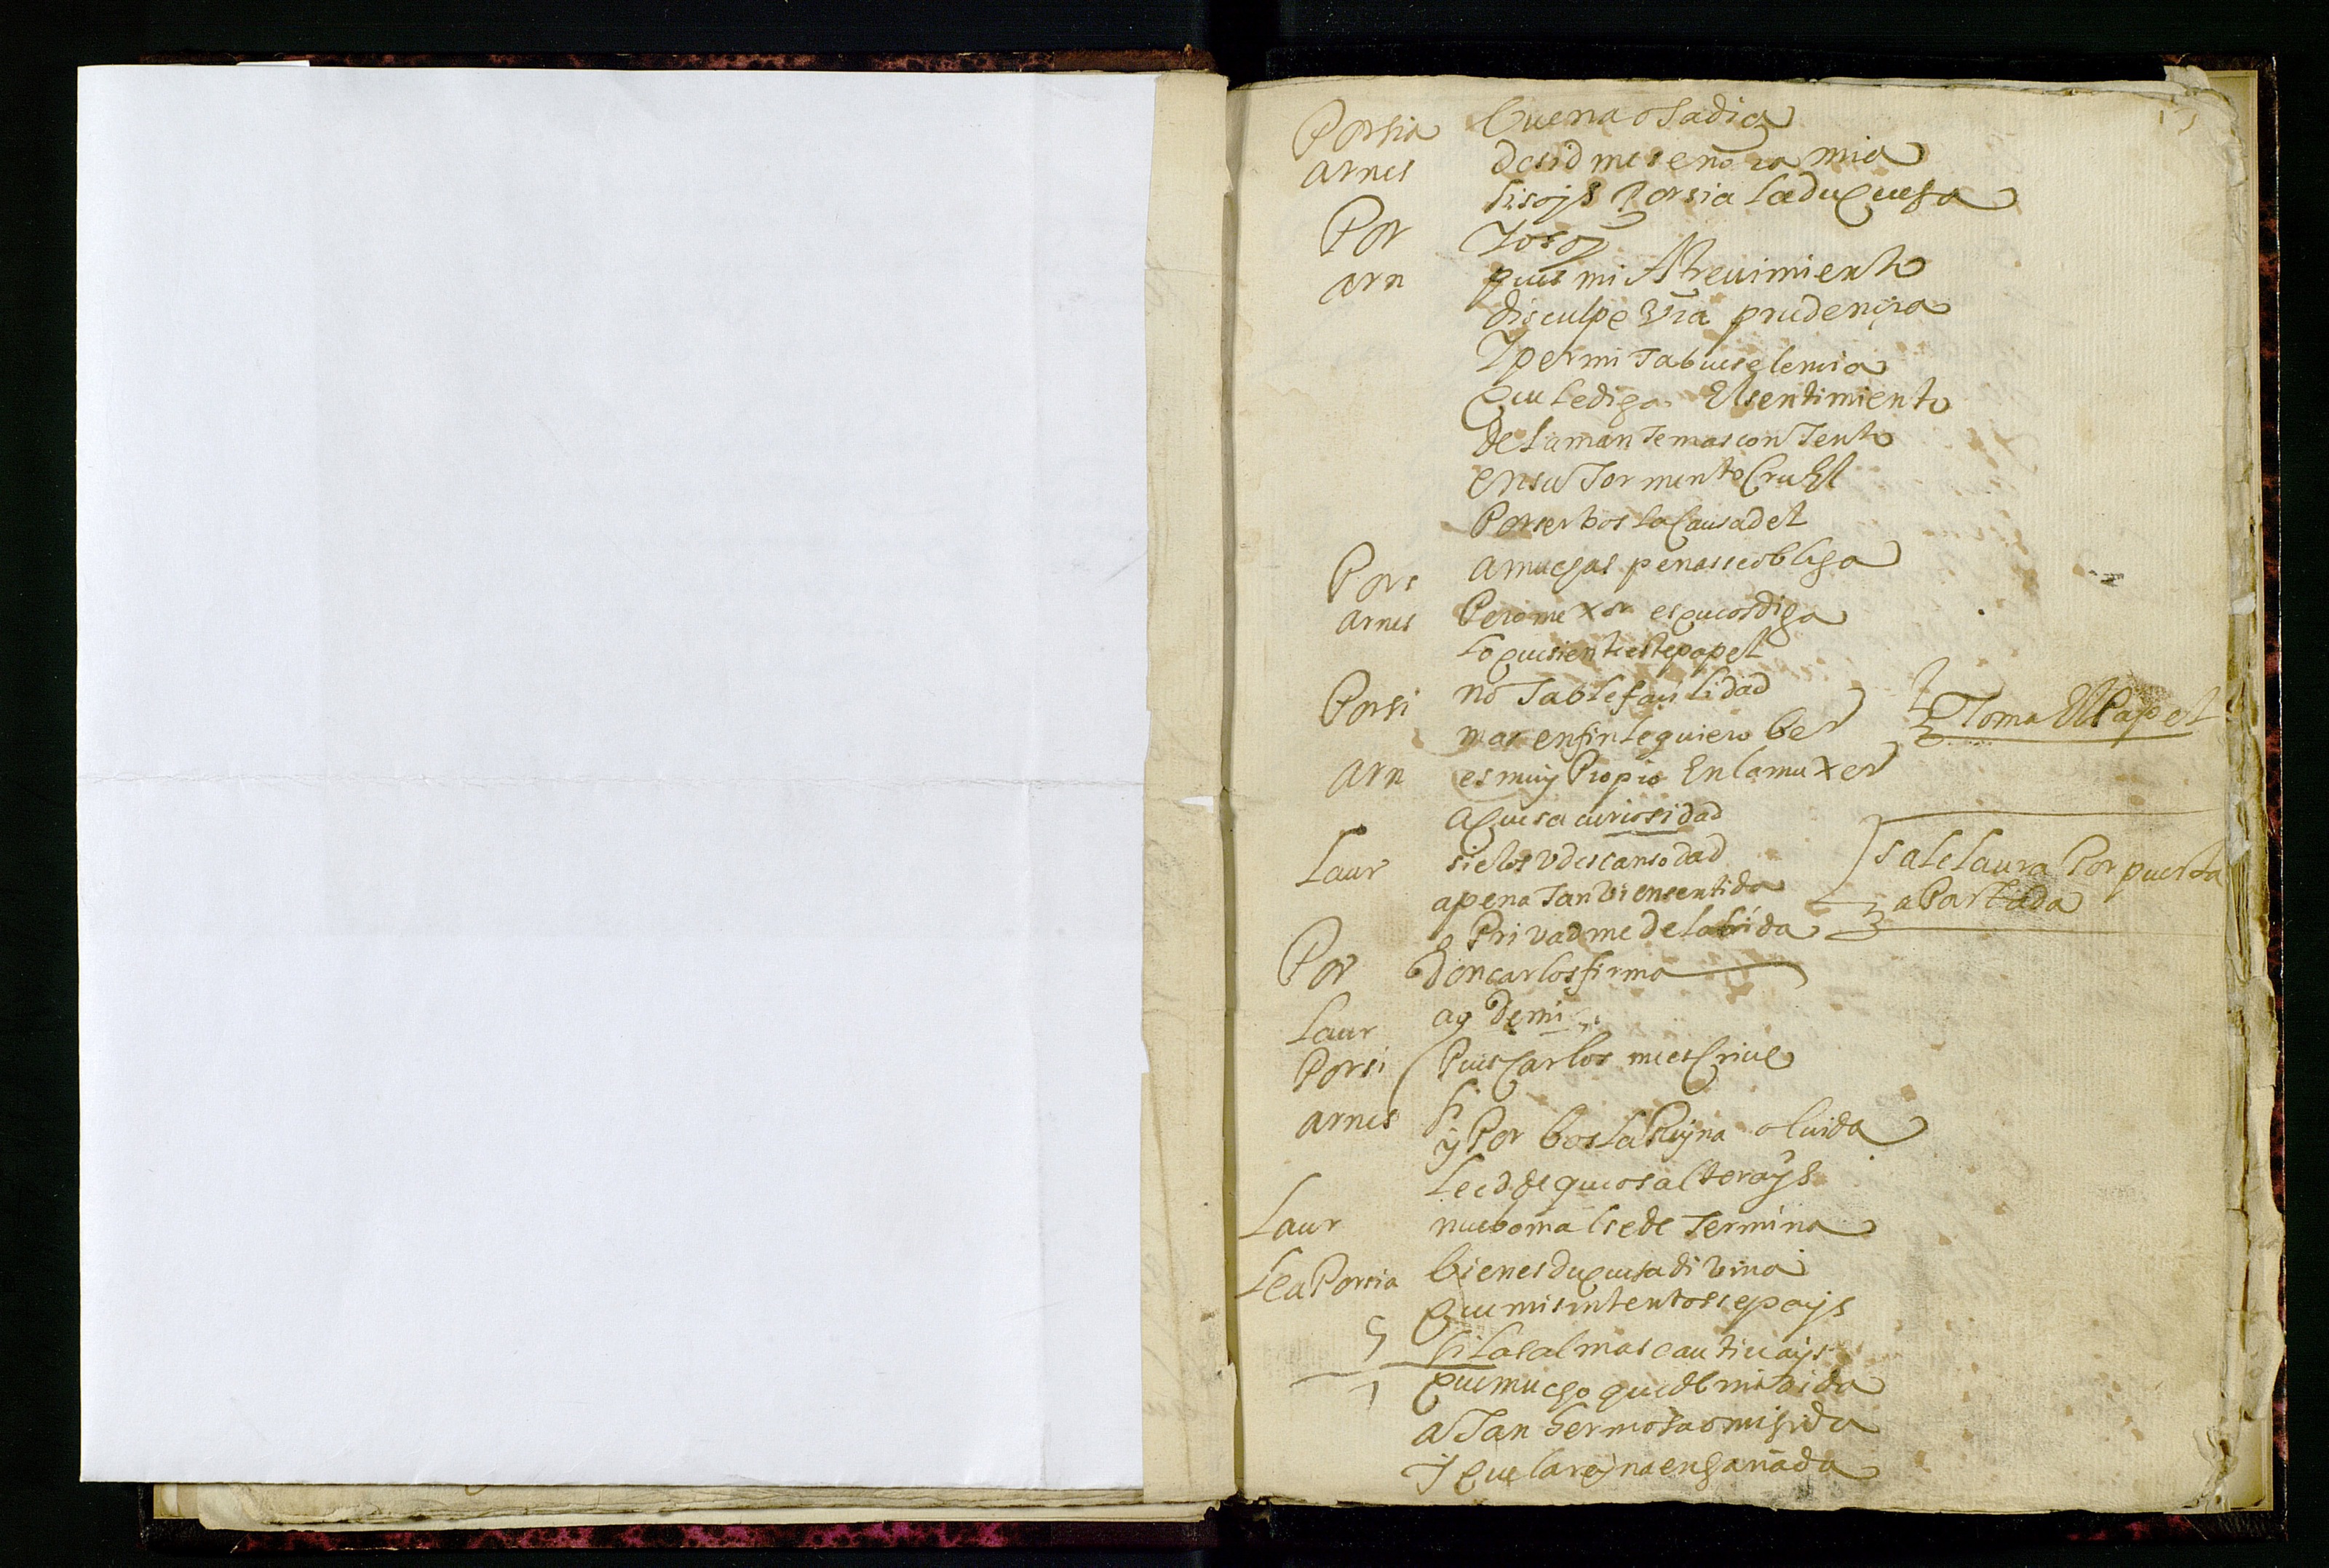 Porsia buena osadia
arnes desid me señora mia
si soys Porsia la duquesa
Por Yo soy
arn pues mi Atreuimiento
disculpe vra prudençia
Y permita bueselencia
que le diga El sentimiento
del amante mas contento
en su Tormento CruEl
Por ser bos la Causa del
Pors a muchas penas se obliga
arnes Pero mexor es que os diga
lo que siente este papel
Porsi noTable facilidad
mas en fin le quiero ber
Toma El Papel
arn es muy Propio En la muxer
aquesa curiosidad
Laur sielos v descanso dad
sale Laura Por puerta
a pena Tan bien sentida
aPartada
o Privadme de la bida
Por don carlos firma
Laur ay de mi
Porsi Pues Carlos me esCriue
arnes si
y Por bos la Reyna oluida
leed de que os alterays
Laur nuebo mal se de Termina
lea Porsia bien es duquesa dibina
que mis intentos sepays
si las almas cautiuays
que mucho que de mi bida
a Tan hermosa omisida
y que la reyna engañada